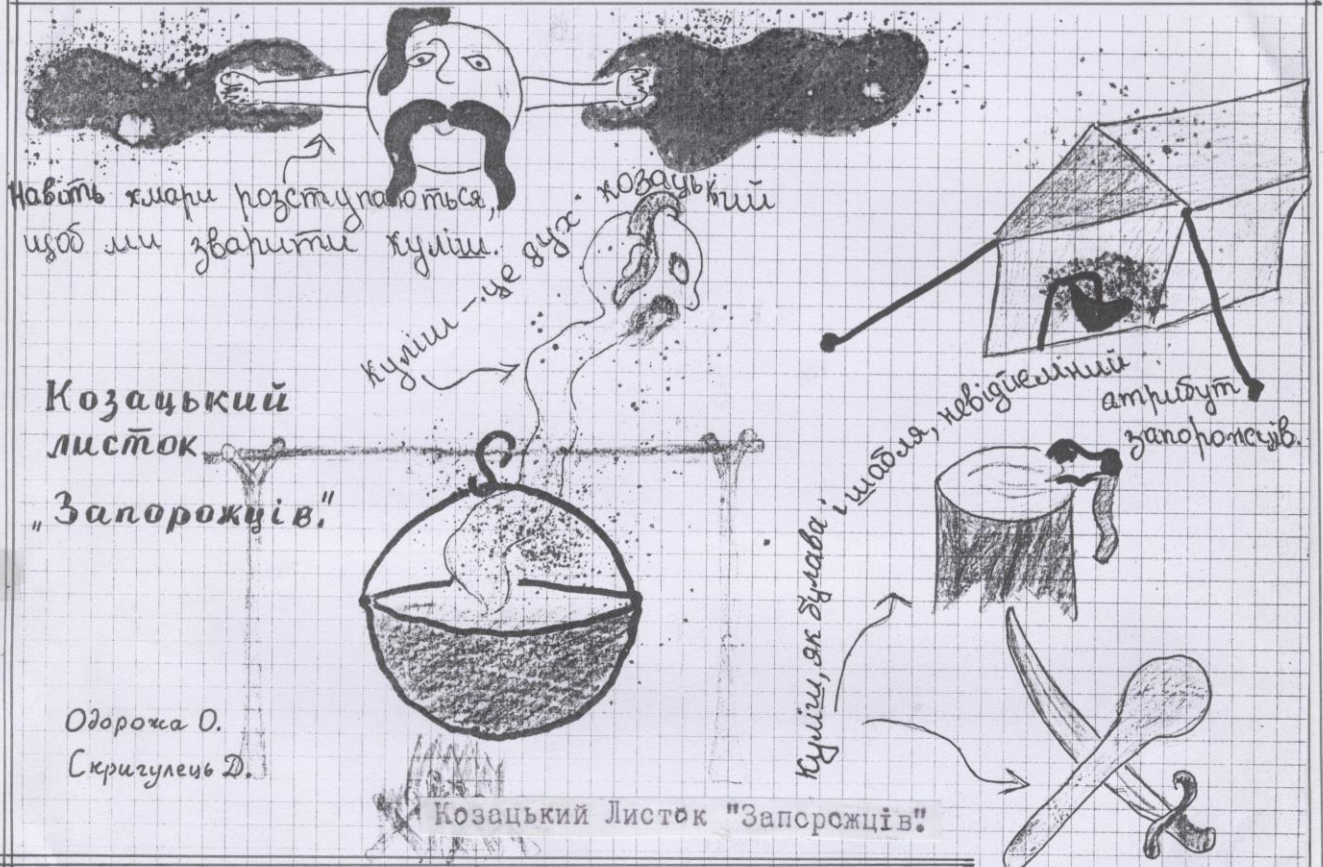 Навіть хмари розступаються,
щоб ми зварити куліш.
Куліш – це дух козацький
Козацький
листок
„Запорожців."
Куліш, як булава і шабля, невідїємний
атрибут
запорожців.
Одорожа О.
Скригулець Д.
Козацький Листок "Запорожців".